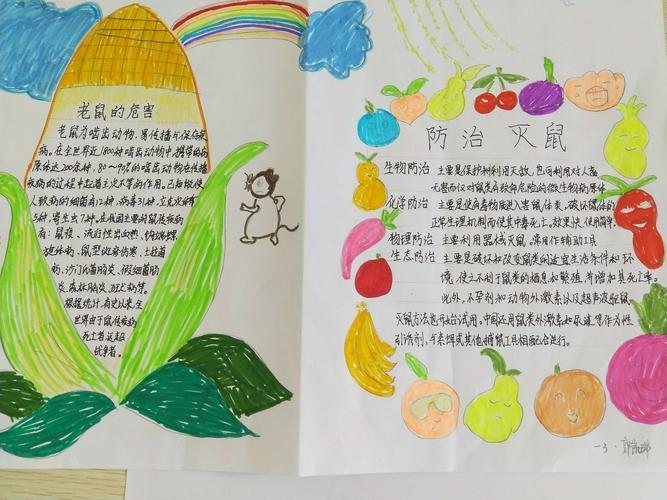 老鼠的危害
老鼠为啮齿动物，易传播疾病
病。在全世界近1800种啮齿动物中，携带病
原体达200余种，80～90%的啮齿动物在传播
疾病的过程中起着主次不等的作用。已知能使
人致病的细菌有14种，病毒31种，立克次体有
5种，寄生虫7种。在我国主要的鼠传疾病
有：鼠疫、流行性出血热、钩端螺
旋体病、鼠型斑疹伤寒、土拉菌
病、沙门氏菌肠炎、假细菌肠
炎、森林脑炎、狂犬病等。
根据统计，有史以来全
世界由于鼠传疾病
死亡者远超
战争者。
防治 灭鼠
生物防治 主要是保护树利用天敌，也可利用对人畜
无害而仅对鼠类有致命危险的微生物病原体
化学防治 主要是使用有毒物质进入害鼠体类，破坏鼠体的
正常生理机制而使其中毒死亡。效果快、使用简单
物理防治 主要利用器械灭鼠，常用作辅助工具
生态防治 主要是破坏和改变鼠类的适宜生活条件和环
境，使之不利于鼠类的栖息和繁殖，并增加其死亡率。
此外，不孕剂和动物外激素以及超声波驱鼠
灭鼠方法也开始试用。中国还用鼠类外激素如尿迹等作为性
引诱剂，与套饵或其他捕鼠工具相配合进行。
一3.